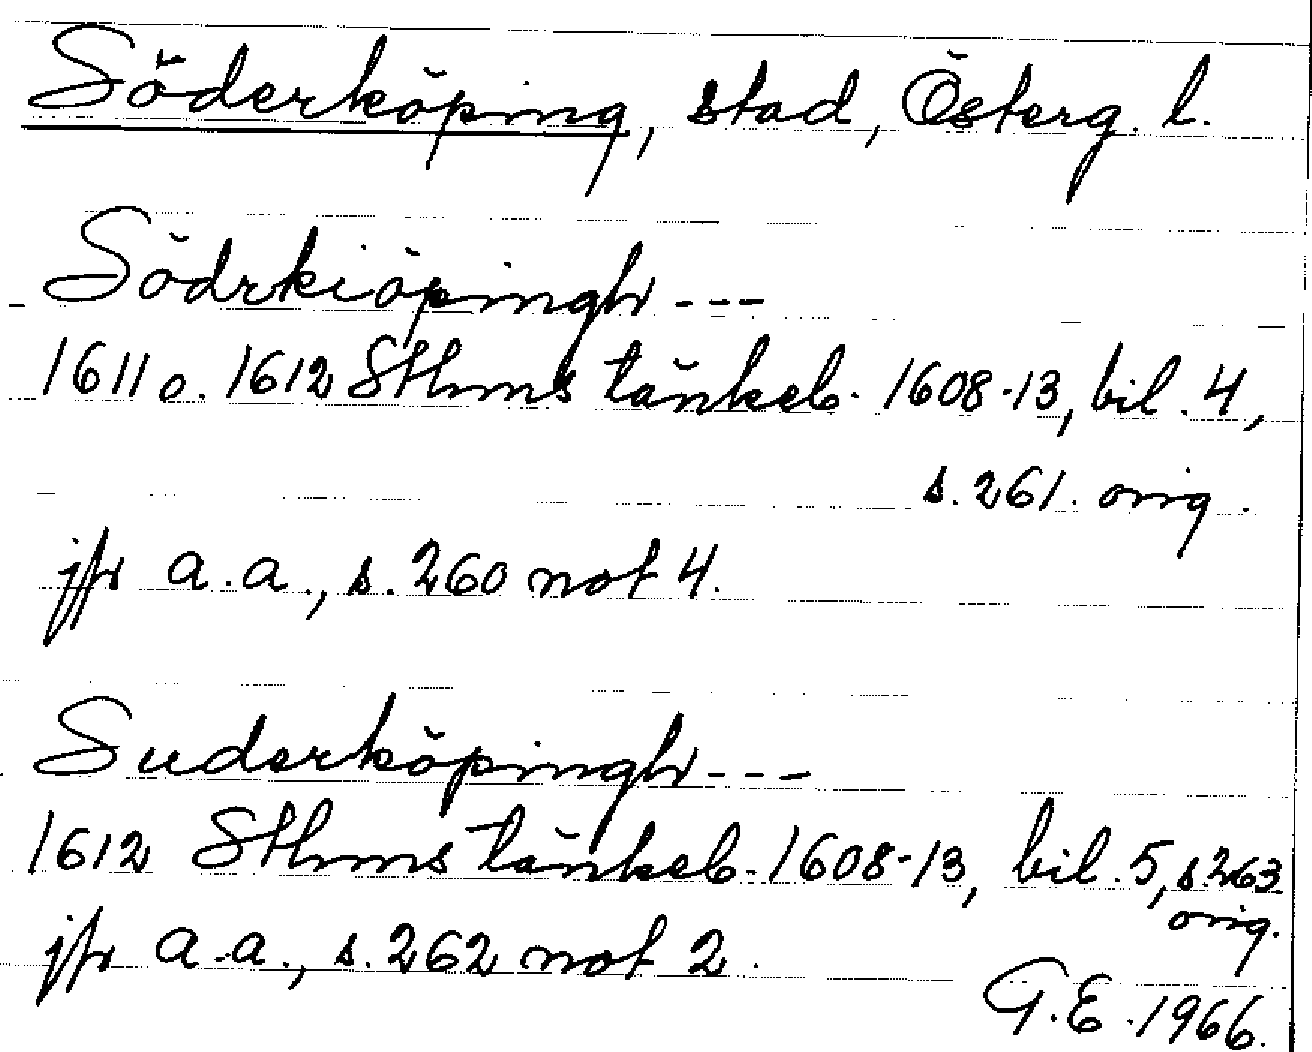 Söderköping, stad, Österg. l.
Södrkiöpingh ---
1611 o. 1612 Sthms tänkeb. 1608-13, bil. 4,
s. 261. orig.
jfr a.a., s. 260 not 4.
Suderköpingh ---
1612 Sthms tänkeb. 1608-13, bil. 5, s. 263
orig.
jfr a.a., s. 262 not 2.
G.E. 1966.